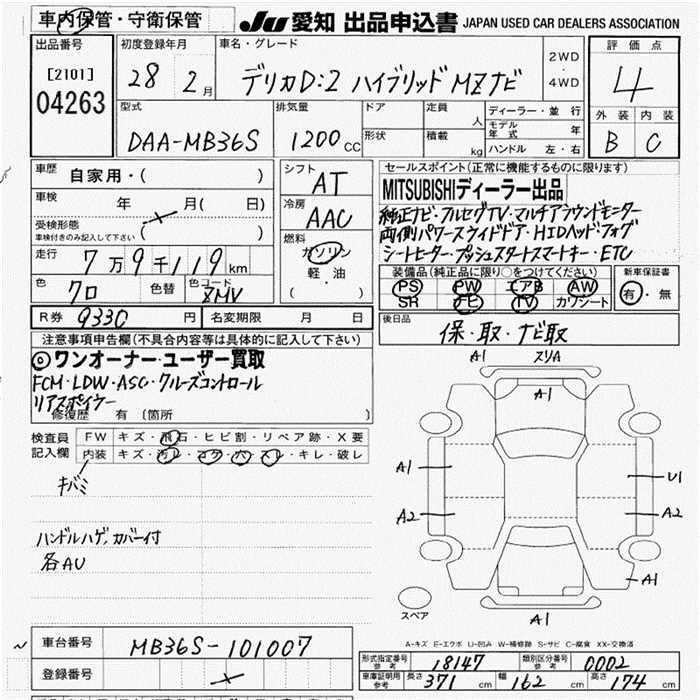 車内保管・守衛保管
JU 愛知 出品申込書 JAPAN USED CAR DEALERS ASSOCIATION
出品番号
[2101]
04263
初度登録年月
28 2月
車名・グレード
デリカD:2 ハイブリッドMZナビ
2WD
・
4WD
評価点
4
外装 内装
B C
型式
DAA-MB36S
排気量
1200cc
ドア
形状
定員 人
積載 kg
ディーラー・並行
モデル年式 年
ハンドル 左・右
車歴
自家用・( )
車検 年 月( 日)
受検形態
車検付きのみ記入して下さい ( )
走行 7万9千119km
色 クロ
色替
色コード
ZMV
シフト
AT
冷房
AAC
燃料
ガソリン
軽・油
( ・ )
R券 9330円
名変期限 月 日
セールスポイント(正常に機能するものに限ります)
MITSUBISHIディーラー出品
純正ナビ・フルセグTV・マルチアラウンドモニター
両側パワースライドドア・HIDヘッド・フォグ
シートヒーター・プッシュスタートスマートキー・ETC
装備品(純正品に限り○をつけてください)
PS PW エアB AW
SR ナビ TV カワシート
新車保証書
有・無
後日品
保・取・ナビ取
注意事項申告欄(不具合内容等は具体的に記入して下さい)
◎ワンオーナー・ユーザー買取
FCM・LDW・ASC・クルーズコントロール
リアスポイラー
修復歴 有(箇所 )
検査員記入欄
FW キズ・飛石・ヒビ割・リペア跡・X要
内装 キズ・汚レ・コゲ・穴・スレ・キレ・破レ
キバミ
ハンドルハゲ,カバー付
各AU
A1 スリA
A1
A1
U1
A2
A2
A1
A1
スペア
A-キズ E-エクボ U-凹み W-補修跡 S-サビ C-腐食 XX-交換済
車台番号 MB36S-101007
登録番号
形式指定番号 参考 18147
類別区分番号 参考 0002
車庫証明用 参考 長さ 371cm 幅 162cm 高さ 174cm